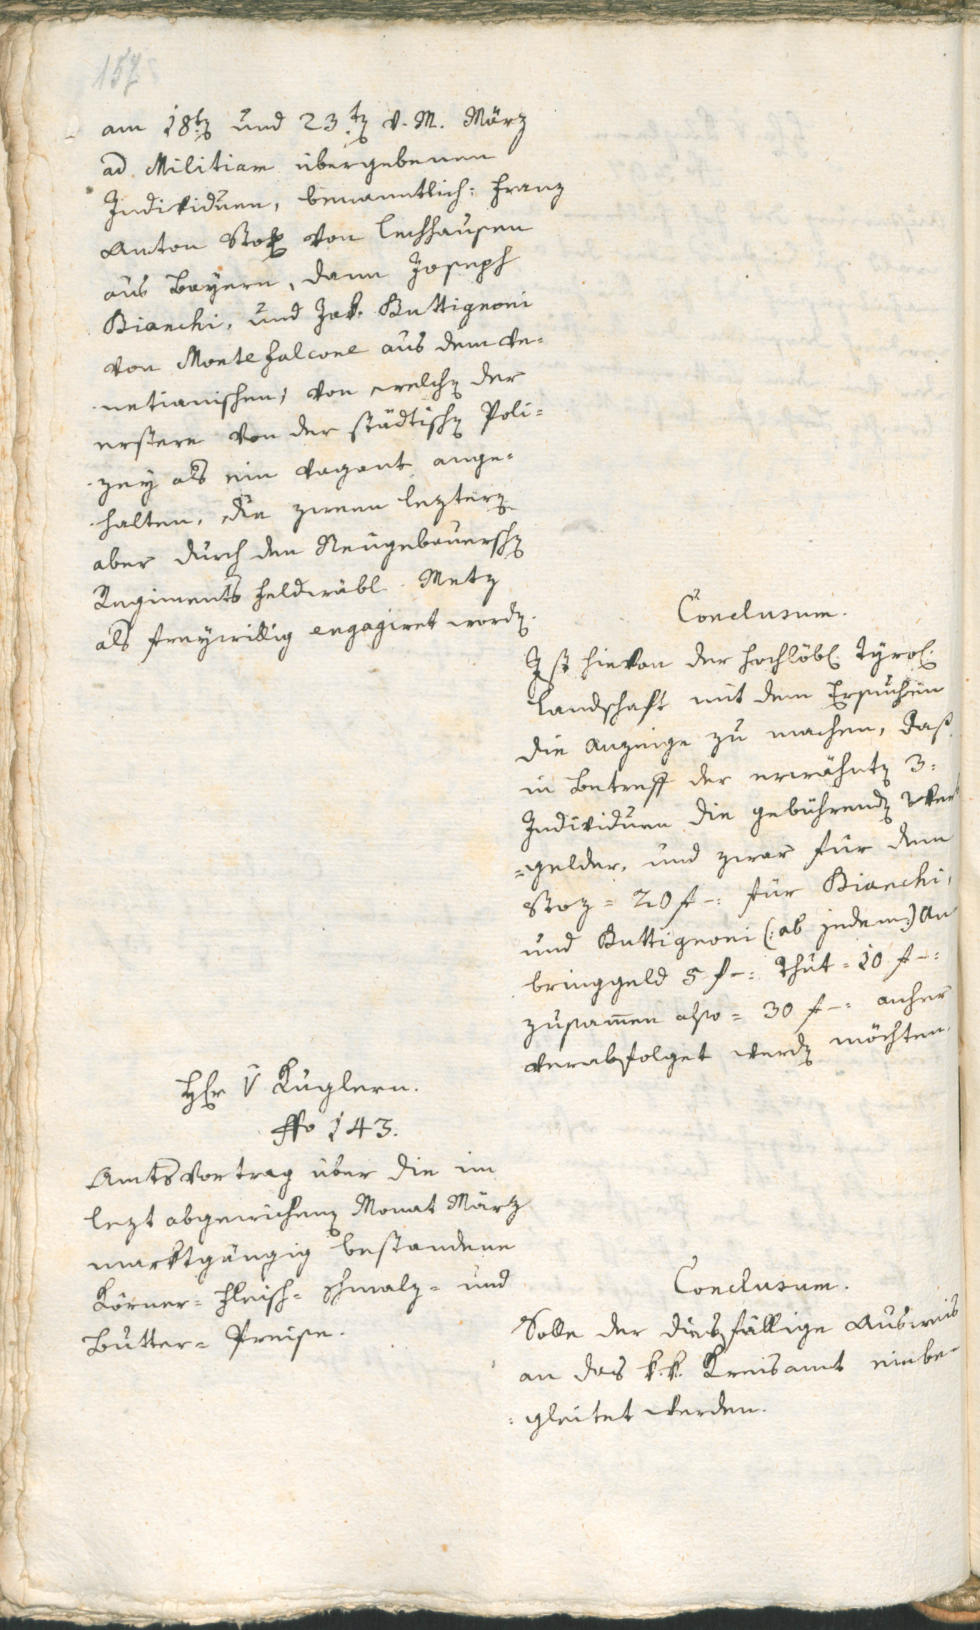 157
am 18t und 23t v. M. März
ad Militiam übergebenen
Individuen, benanntlich: Franz
Anton Stotz von Lechhausen
aus Bayern, dann Joseph
Bianchi, und Jak. Buttignoni
von Montefalcone aus dem Ve-
netianischen, von welchen der
erstere von der städtischen Poli-
zey als ein Vagant ange-
halten, die zween leztern
aber durch den Neugebauerschen
Regiments Feldwäbl Metz
als freywillig engagiret worden.
Conclusum.
Ist hievon der hochlöbl. Tyrol.
Landschaft mit dem Ersuchen
die Anzeige zu machen, daß
in Betreff der erwähnten 3:
Individuen die gebührenden
=gelder, und zwar für dem
Stoz = 20 f –: für Bianchi,
und Buttignoni (: ab jedem :) An
bringgeld 5 f –: Thut = 10 f –:
zusamen also = 30 f –: anher
verabfolget werden möchten.
Hr. v Kuglern.
No 143.
Amtsvortrag über die im
lezt abgewichenen Monat März
marktgängig bestandene
Körner= Fleisch= Schmalz= und
Butter= Preise.
Conclusum.
Solle der diesfällige Ausweis
an das k. k. Kreisamt einbe-
=gleitet werden.